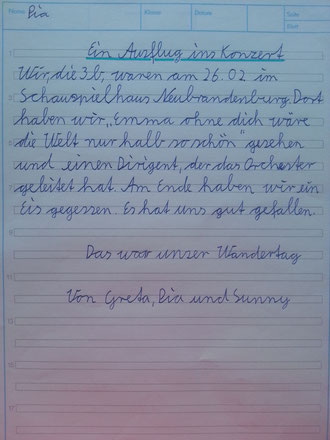 Name: Pia Klasse Datum Seite
Blatt
Ein Ausflug ins Konzert
Wir, die 3.b, waren am 26.02 im
Schauspielhaus Neubrandenburg. Dort
haben wir „Emma ohne dich wäre
die Welt nur halb so schön" gesehen
und einen Dirigent, der das Orchester
geleitet hat. Am Ende haben wir ein
Eis gegessen. Es hat uns gut gefallen.
Das war unser Wandertag
Von Greta, Pia und Sunny